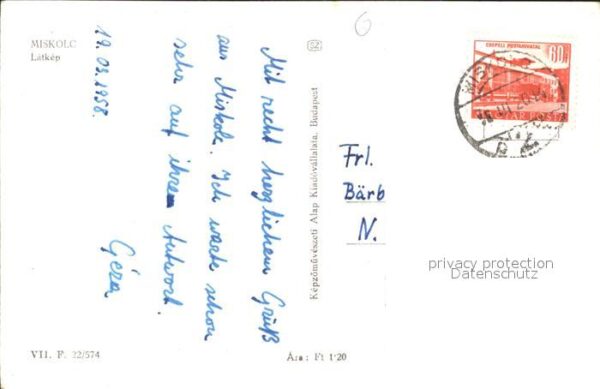 MISKOLC
Látkép
19.03.1958.
Mit recht herzlichem Grüß
aus Miskolc. Ich warte schon
sehr auf ihrem Antwort.
Géza
Képzőművészeti Alap Kiadóvállalata, Budapest
6
60f
CSEPELI POSTAHIVATAL
MAGYAR POSTA
Frl.
Bärb
N.
privacy protection
Datenschutz
VII. F. 32/574
Ára: Ft 1·20